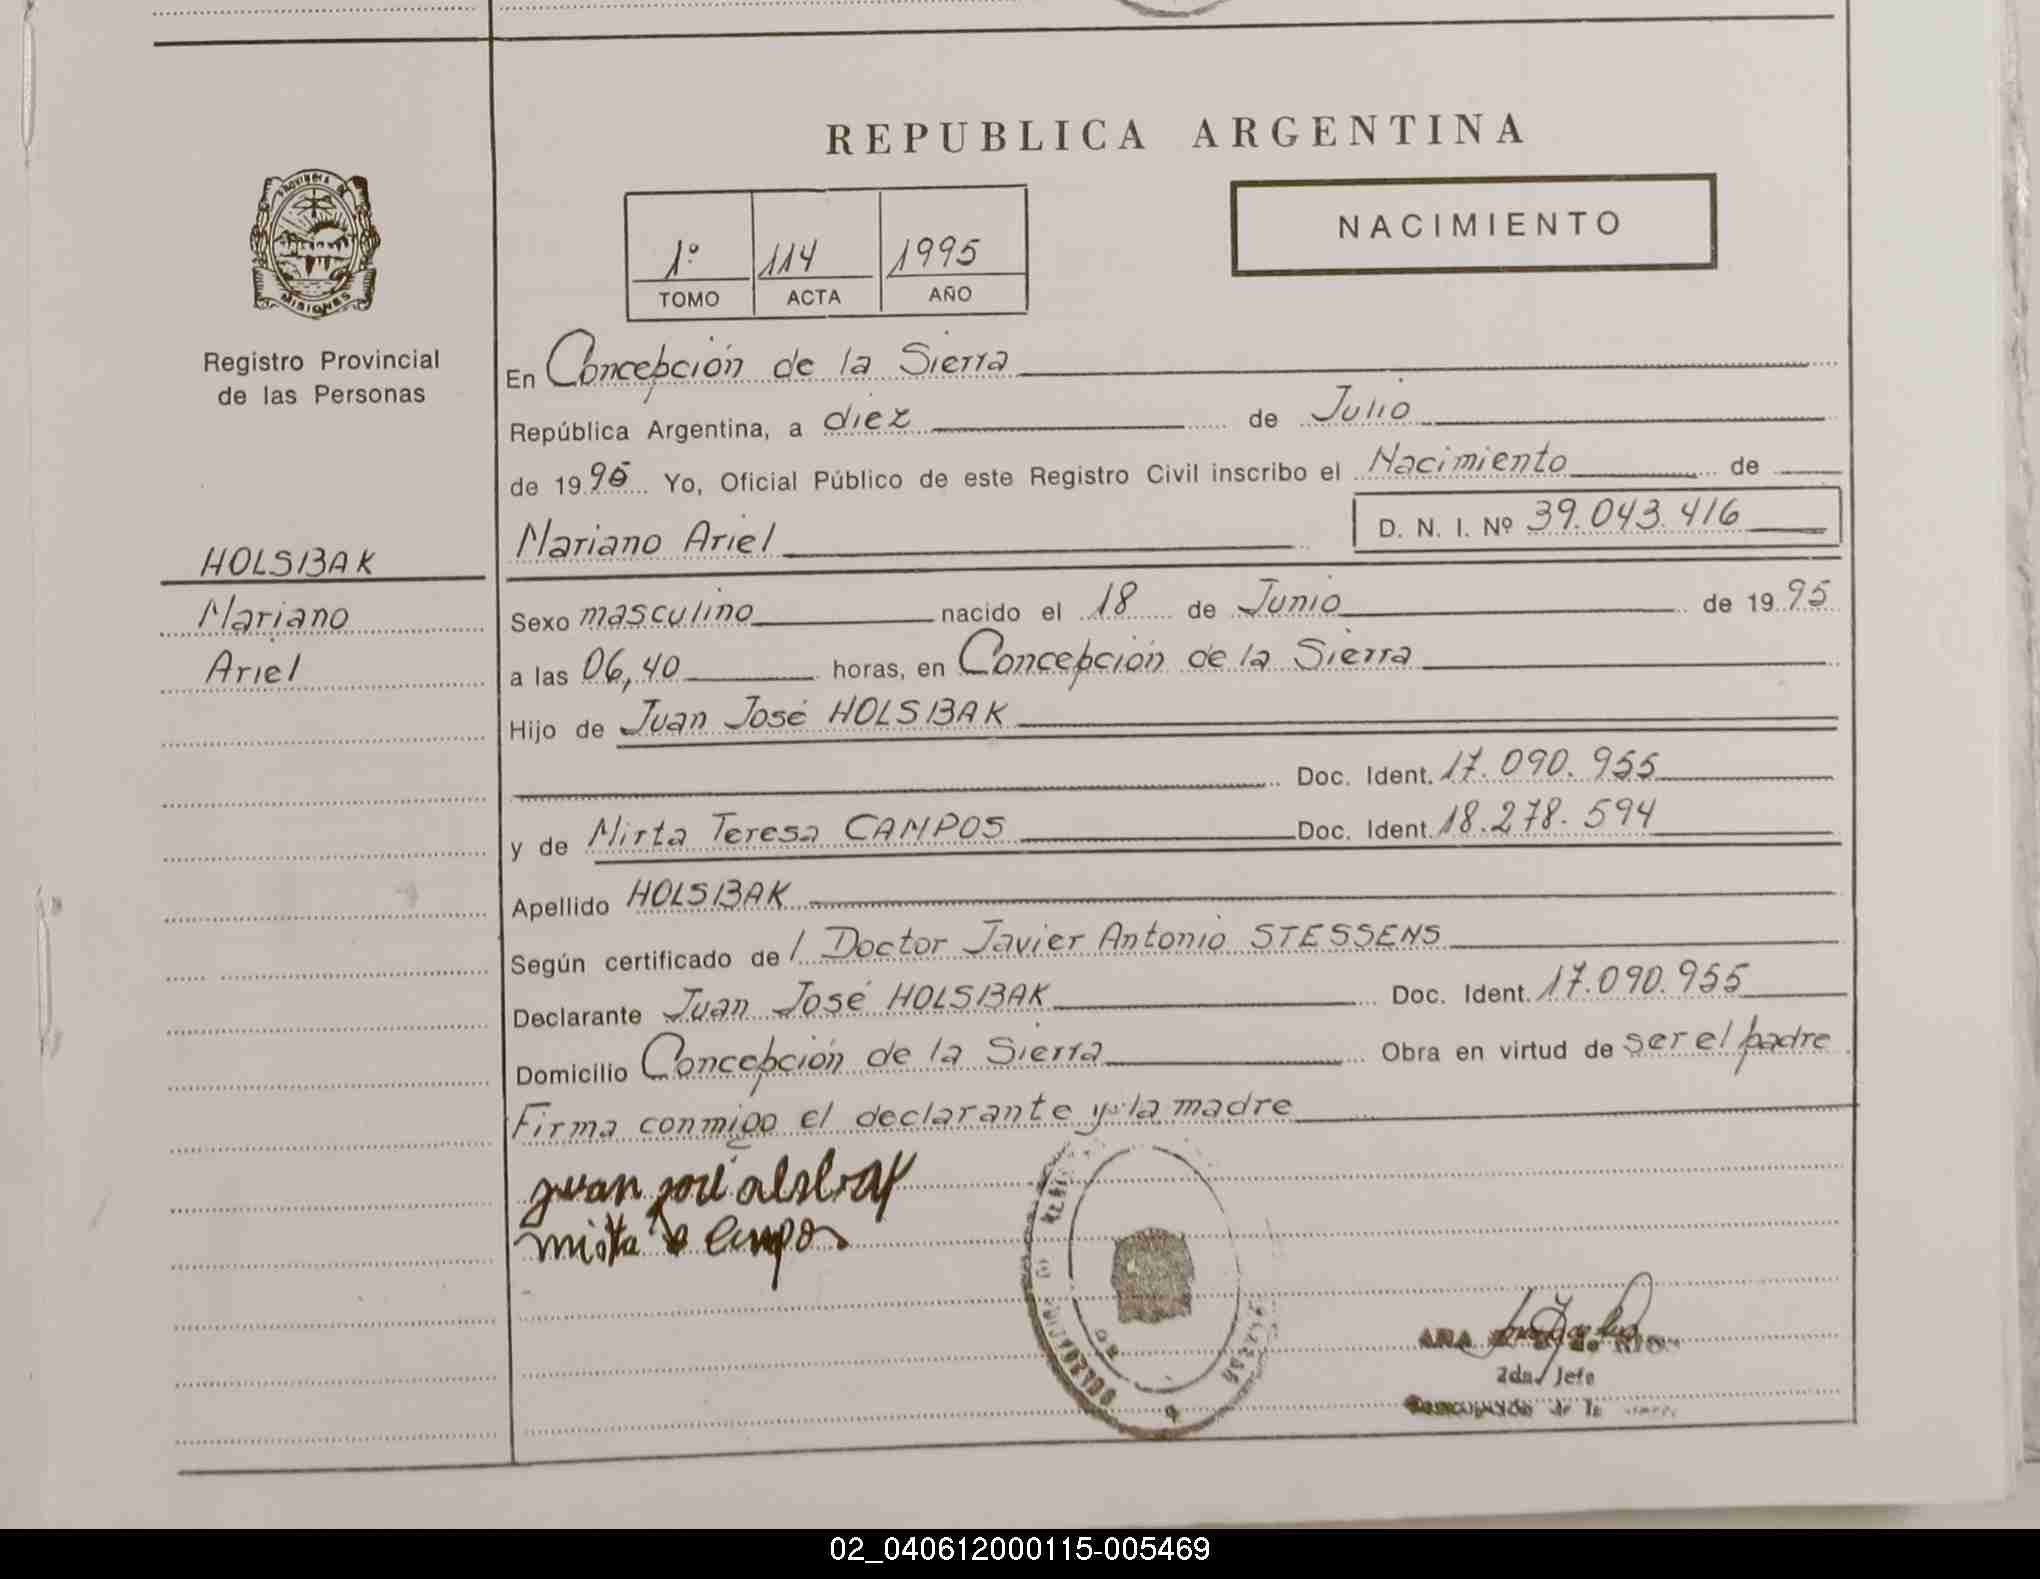 REPUBLICA ARGENTINA
PROVINCIA DE
MISIONES
Registro Provincial
de las Personas
1º 114 1995
TOMO ACTA AÑO
NACIMIENTO
En Concepción de la Sierra
República Argentina, a diez de Julio
de 1995 Yo, Oficial Público de este Registro Civil inscribo el Nacimiento de
Mariano Ariel D. N. I. Nº 39.043.416
HOLSBAK
Mariano
Ariel
Sexo masculino nacido el 18 de Junio de 1995
a las 06,40 horas, en Concepción de la Sierra
Hijo de Juan José HOLSBAK
Doc. Ident. 17.090.955
y de Mirta Teresa CAMPOS Doc. Ident. 18.278.594
Apellido HOLSBAK
Según certificado de l Doctor Javier Antonio STESSENS
Declarante Juan José HOLSBAK Doc. Ident. 17.090.955
Domicilio Concepción de la Sierra Obra en virtud de ser el padre
Firma conmigo el declarante y la madre
juan josé
mirta campos
ANA de
2da. Jefe
de la
02_040612000115-005469